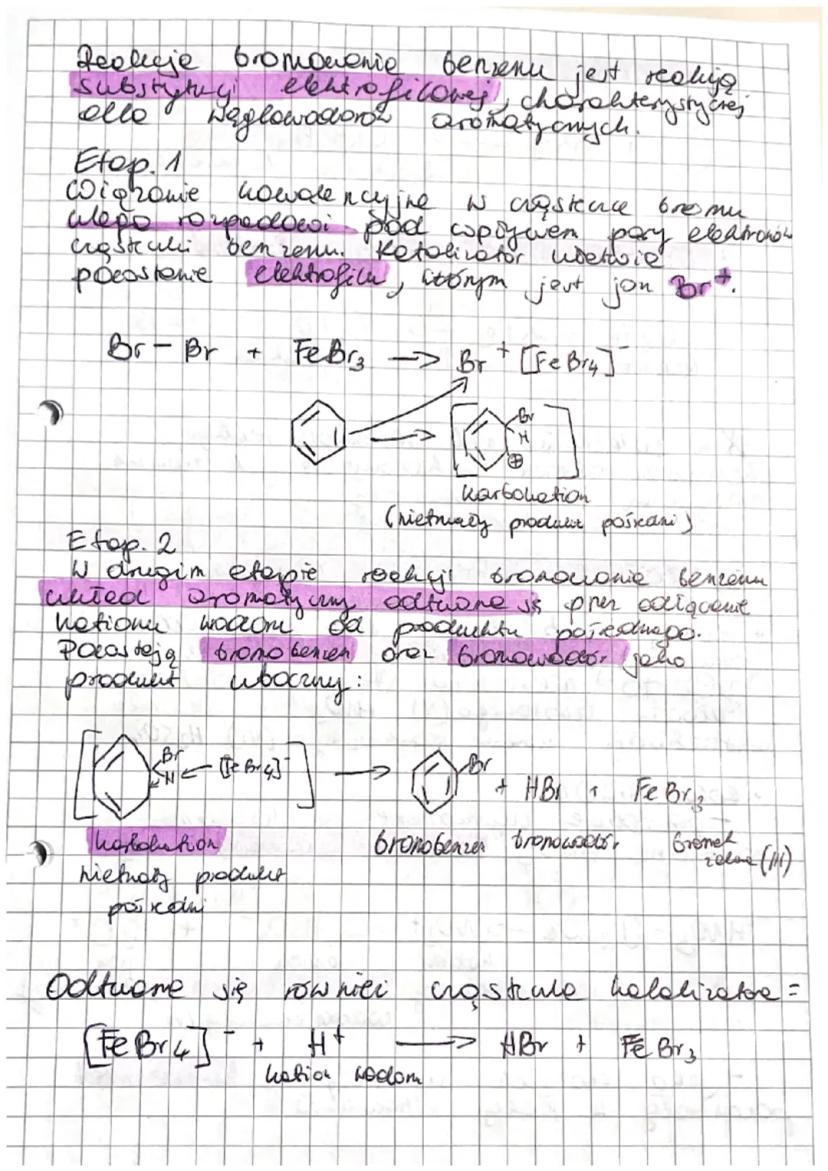 Reakcje bromowania benzenu jest reakcją
substytucji elektrofilowej, charakterystycznej
dla węglowodorów aromatycznych.
Etap. 1
Wiązanie kowalencyjne w cząsteczce bromu
ulega rozpadowi pod wpływem pary elektronów
cząsteczki benzenu. Katalizator ułatwia
powstanie elektrofilu, którym jest jon Br⁺.
Br – Br + FeBr₃ → Br⁺ [FeBr₄]⁻
Br
H
⊕
karbokation
(nietrwały produkt pośredni)
Etap. 2
W drugim etapie reakcji bromowanie benzenu
układ aromatyczny odtwarza się przez odłączenie
kationu wodoru od produktu pośredniego.
Powstają bromobenzen oraz bromowodór jako
produkt uboczny:
Br
H ← [FeBr₄]⁻ → Br + HBr + FeBr₃
karbokation bromobenzen bromowodór bromek żelaza (III)
nietrwały produkt
pośredni
Odtwarza się również cząsteczka katalizatora =
[FeBr₄]⁻ + H⁺ → HBr + FeBr₃
kation wodoru